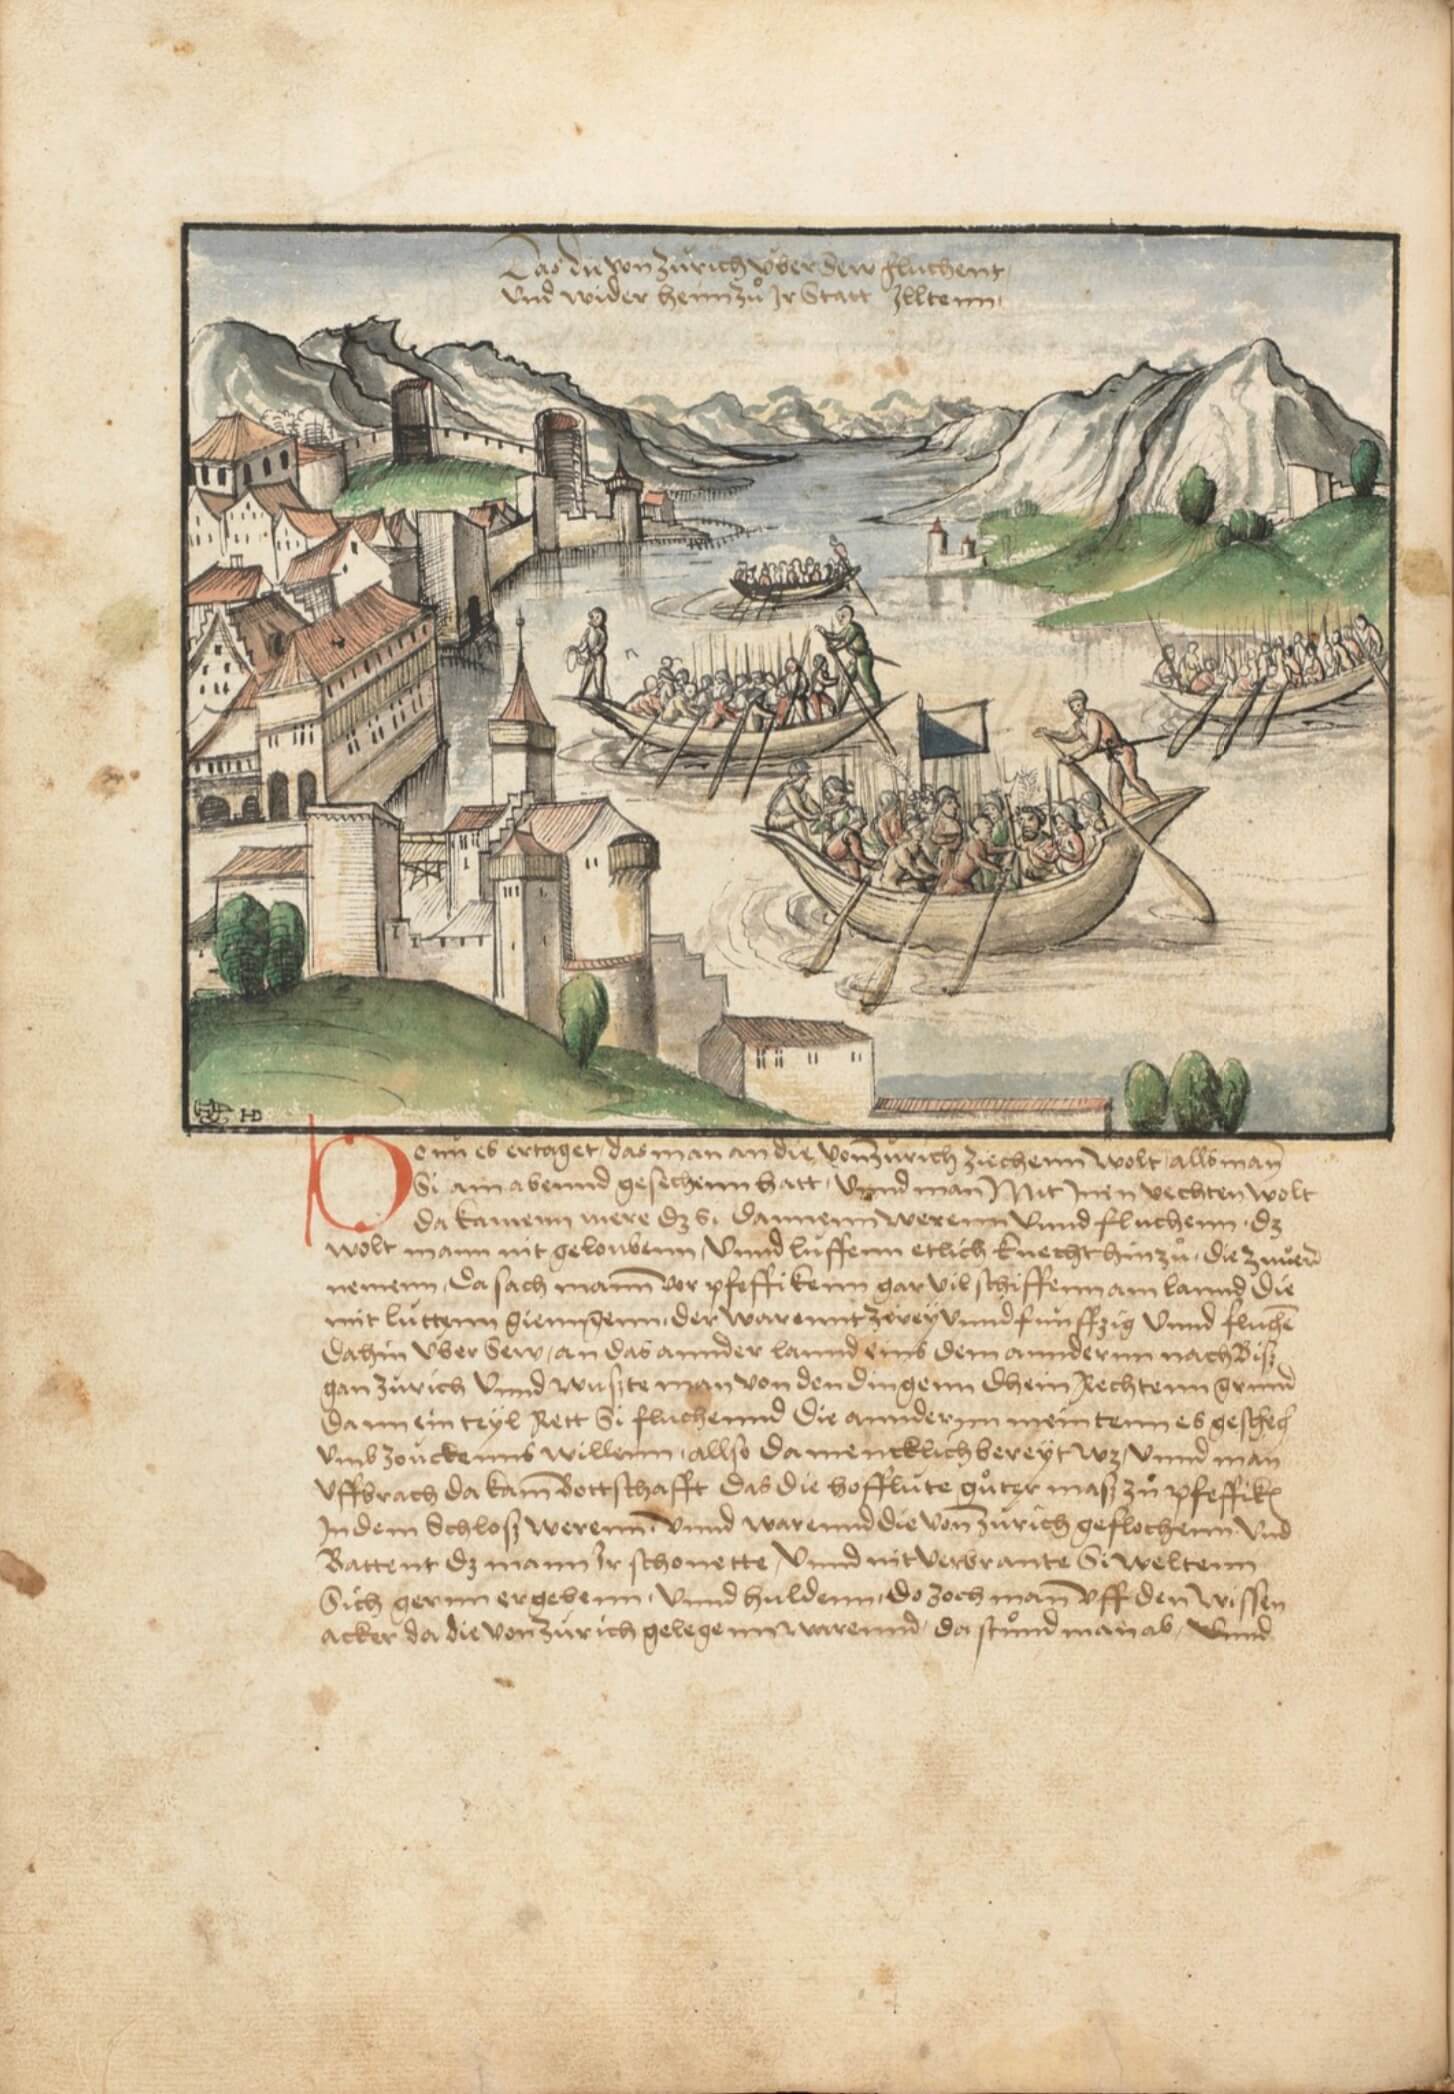 Das die von Zürich über Sew fluchent,
Und wider heim zů Ir Statt Illtenn,
HD
Do nu es ertaget, das man an die vonn Zürich ziechenn wolt, alls man
Si am abennd gesechenn hatt, Unnd man Mit Inen vechten wolt
da kamenn mere dz Si dannenn werenn Unnd fluchenn, dz
wolt mann nit geloubenn, Unnd luffenn etlich knecht hin zů, die zuver
nemenn, Da sach mann vor pfeffikenn gar vil schiffenn am lannd, Die
mit lüttenn giengenn, der warennt zwey Unnd fünffzig Unnd fluchen
dahin über Sew, an das annder lannd eins dem anndernn nach Bisz
gan Zürich Unnd wuszte man von den dingenn dhein Rechtenn grund
dann ein teyl Rett Si fluchennd Die anndernn meintenn es geschech
umb zouckenns willenn, allso da mencklich bereyt wz, Unnd man
uffbrach da kam Bottschafft das die hofflute gůter masz zů pfeffik
In dem Schlosz werenn, Unnd warennd die von Zürich geflochenn Und
Battent dz mann Ir schonette, Unnd nit verbrante Si weltenn
Sich gernn ergebenn, Unnd huldenn, do zoch man uff den wissen
acker da die von Zürich gelegenn warennd, da stůnd man ab, Unnd